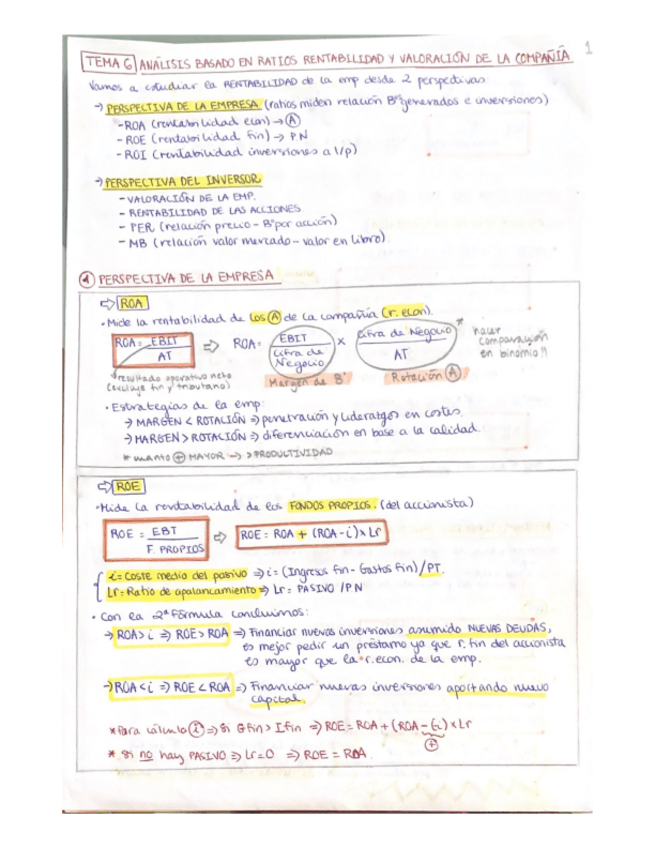 1
TEMA 6 ANÁLISIS BASADO EN RATIOS RENTABILIDAD Y VALORACIÓN DE LA COMPAÑÍA
Vamos a estudiar la RENTABILIDAD de la emp desde 2 perspectivas:
→ PERSPECTIVA DE LA EMPRESA (ratios miden relación Bº generados e inversiones)
- ROA (rentabilidad econ) → Ⓐ
- ROE (rentabilidad fin) → P.N
- ROI (rentabilidad inversiones a l/p)
→ PERSPECTIVA DEL INVERSOR
- VALORACIÓN DE LA EMP.
- RENTABILIDAD DE LAS ACCIONES
- PER (relación precio - Bº por acción)
- MB (relación valor mercado - valor en libro)
① PERSPECTIVA DE LA EMPRESA
⇨ ROA
· Mide la rentabilidad de los Ⓐ de la compañía (r. econ).
ROA = EBIT / AT ⇨ ROA = EBIT / Cifra de Negocio x Cifra de Negocio / AT * hacer comparación en binomio!!
resultado operativo neto (excluye fin y tributario)
Margen de Bº
Rotación Ⓐ
· Estrategias de la emp:
→ MARGEN < ROTACIÓN ⇒ penetración y liderazgo en costes.
→ MARGEN > ROTACIÓN ⇒ diferenciación en base a la calidad.
* cuanto ⊕ MAYOR → > PRODUCTIVIDAD
⇨ ROE
· Mide la rentabilidad de los FONDOS PROPIOS. (del accionista)
ROE = EBT / F. PROPIOS ⇨ ROE = ROA + (ROA - i) x Lr
i = Coste medio del pasivo ⇒ i = (Ingresos fin - Gastos fin) / PT.
Lr = Ratio de apalancamiento ⇒ Lr = PASIVO / PN
· Con la 2ª fórmula concluimos:
→ ROA > i ⇒ ROE > ROA ⇒ Financiar nuevas inversiones asumido NUEVAS DEUDAS,
es mejor pedir un préstamo ya que r. fin del accionista
es mayor que la r. econ. de la emp.
→ ROA < i ⇒ ROE < ROA ⇒ Financiar nuevas inversiones aportando nuevo
capital.
* Para cálculo ⓘ ⇒ Si Gfin > Ifin ⇒ ROE = ROA + (ROA - (i) x Lr
⊕
* Si no hay PASIVO ⇒ Lr = 0 ⇒ ROE = ROA.